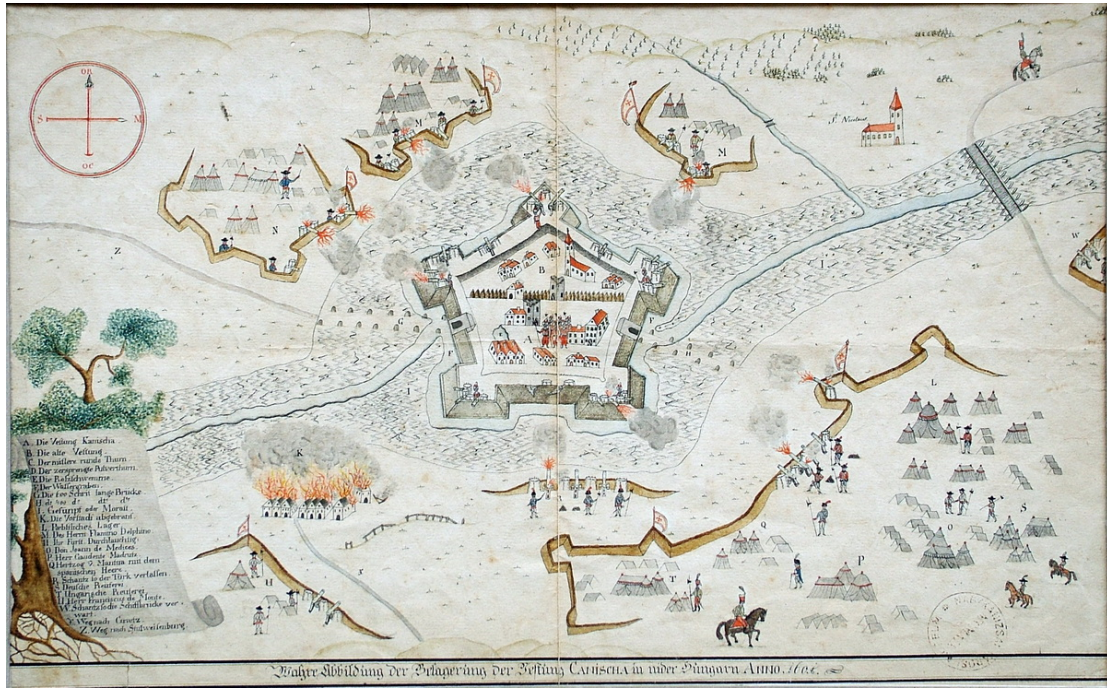 OR
S M
OC
M
M
N
St. Nicolaus
Z
I
W
B
A
F
F
I
L
K
Q
O
S
P
T
H
X
A. Die Vestung Kanischa
B. Die alte Vestung
C. Der mitlere runde Thurn
D. Der zersprengte Pulverthurn
F. Der Wassergraben
G. Die 600 Schrit lange Brücke
I. oder Morast
K. Die Vorstadt abgebrant
L. Päbstliches Lager
M. Des Herrn Flaminio Delphino
N. Ihr Fürstl. Durchlauching
O. Don Joann de Medices
P. Herr Gaudentz Madrutz
Q. Hertzog v. Mantua mit dem
Heere
R. Schantz so der Türk verlassen
S. Deutsche Reuterei
T. Ungarische Reuterei
W. Schantz so die Schifbrücke ver-
wart
Z. Weg nach Stulweissenburg
Wahre Abbildung der Belagerung der Vestung CANISCHA in nider Hungarn ANNO